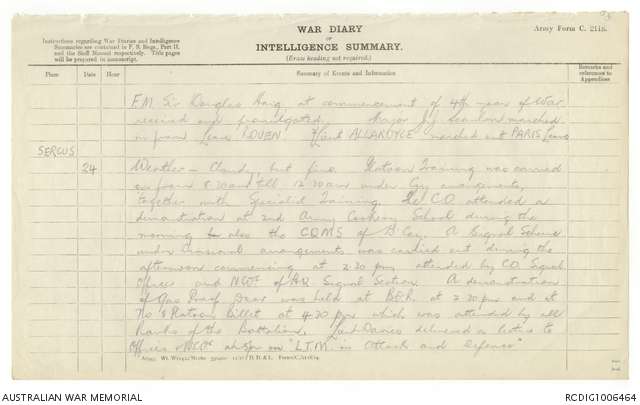 WAR DIARY
or
INTELLIGENCE SUMMARY.
(Erase heading not required.)
Army Form C. 2118.
Instructions regarding War Diaries and Intelligence
Summaries are contained in F. S. Regs., Part II.
and the Staff Manual respectively. Title pages
will be prepared in manuscript.
Place Date Hour Summary of Events and Information Remarks and
references to
Appendices
F.M. Sir Douglas Haig at commencement of 4th year of War
received and promulgated. Major J.J. Scanlan marched
in from Leave ROUEN. Lieut ALLARDYCE marched out PARIS Leave
SERCUS
24 Weather - Cloudy but fine. Platoon Training was carried
on from 8.30 am till 12.30 pm under Coy arrangements,
together with Specialist Training. The C.O. attended a
demonstration at 2nd Army Cookery School during the
morning also the CQMS of B Coy. A Signal Scheme
under Divisional arrangements was carried out during the
afternoon commencing at 2.30 pm attended by C.O. Signal
Officer and NCOs of HQ Signal Section. A demonstration
of Gas Proof was held at at 2.30 pm and at
No 8 Platoons billet at 4.30 pm which was attended by all
Ranks of the Battalion. Davies delivered a lecture to
Officers & NCOs at on "L.T.M. in Attack and Defence"
AUSTRALIAN WAR MEMORIAL
RCDIG1006464